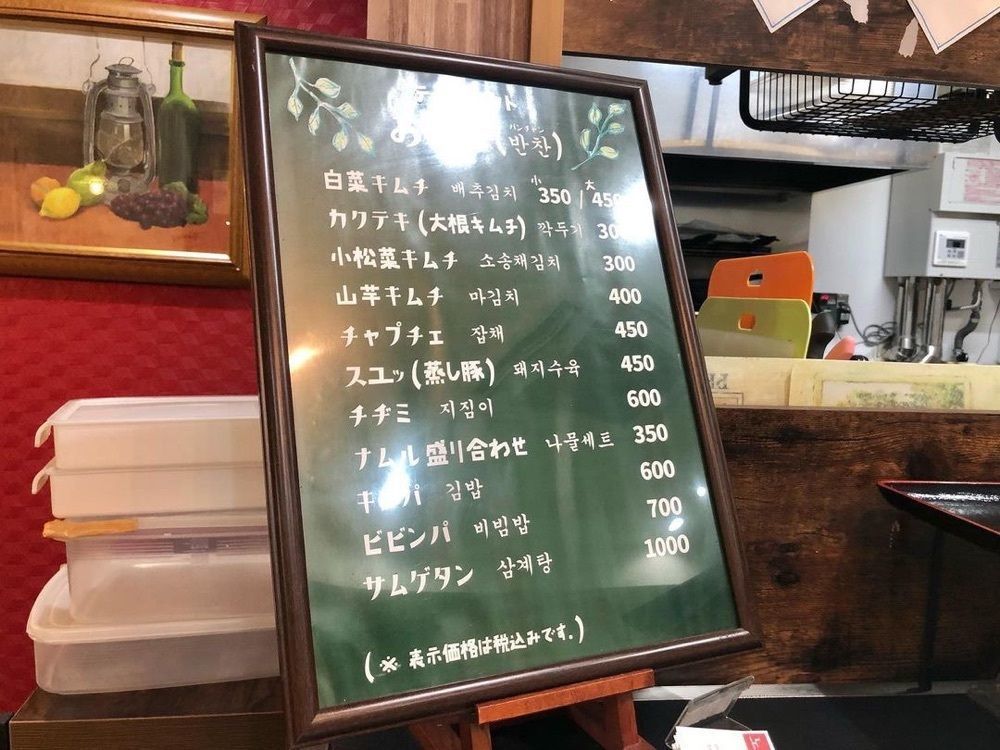 (반찬)
バンチャン
白菜キムチ 배추김치 小350 / 大450
カクテキ(大根キムチ) 깍두기 300
小松菜キムチ 소송채김치 300
山芋キムチ 마김치 400
チャプチェ 잡채 450
スユッ(蒸し豚) 돼지수육 450
チヂミ 지짐이 600
ナムル盛り合わせ 나물세트 350
キンパ 김밥 600
ビビンパ 비빔밥 700
サムゲタン 삼계탕 1000
(※ 表示価格は税込みです。)